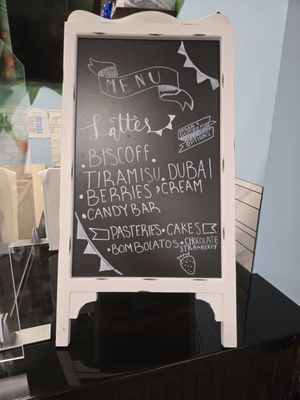 MENU
Lattes
VEGAN & 
OPTIONS
• BISCOFF •
TIRAMISU • DUBAI
• BERRIES & CREAM
• CANDY BAR
PASTERIES • CAKES
• BOMBOLATOS • CHOCOLATE
STRAWBERRY